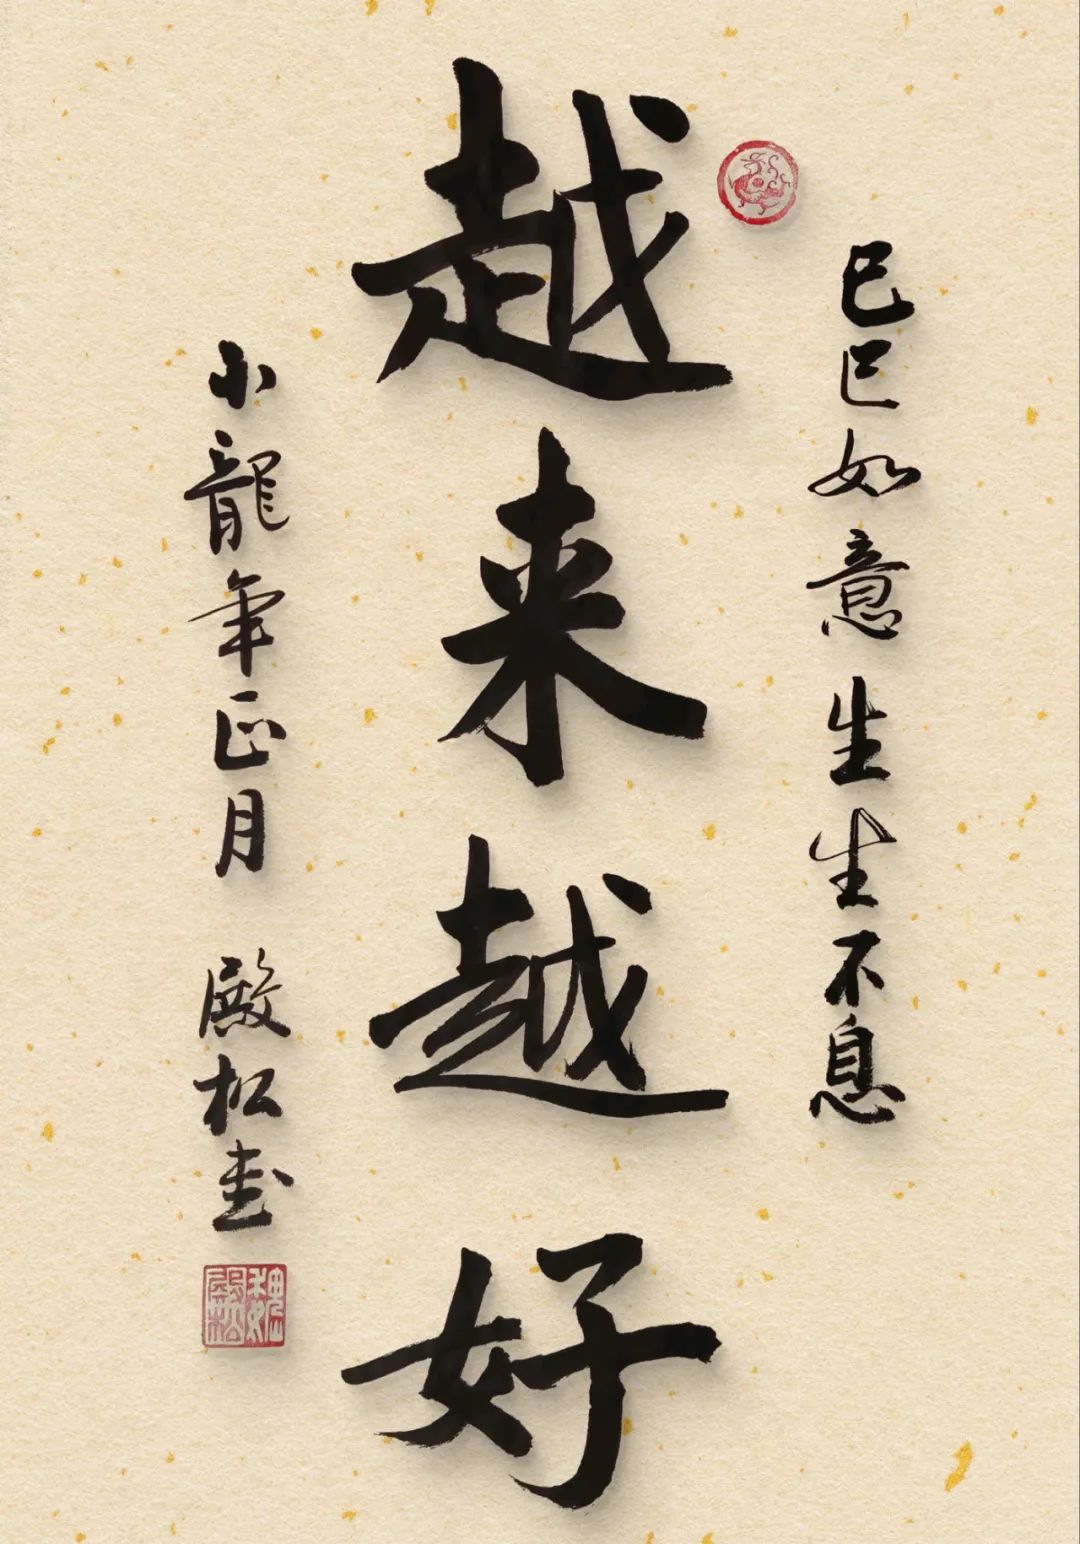 巳巳如意生生不息
越来越好
小龍年正月 殿松书
魏殿松